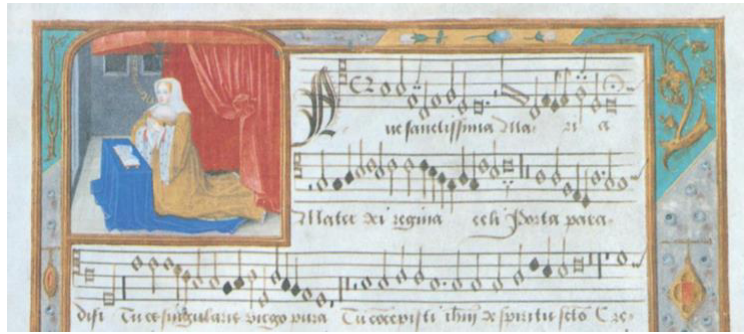 Ave sanctissima Ma- ri a
Mater dei regina celi Porta para-
disi Tu es singularis virgo pura Tu cōcepisti ihm de spiritu scto Cre-